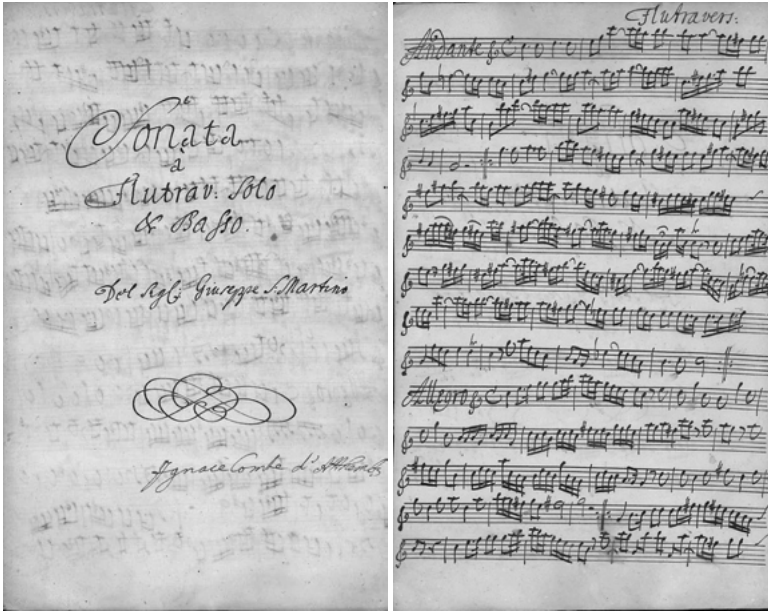 Sonata
a
Flutrav: Solo
& Basso.
Del Sigl: Giuseppe S. Martino
Ignace Comte d'
Flutravers:
Andante
Allegro